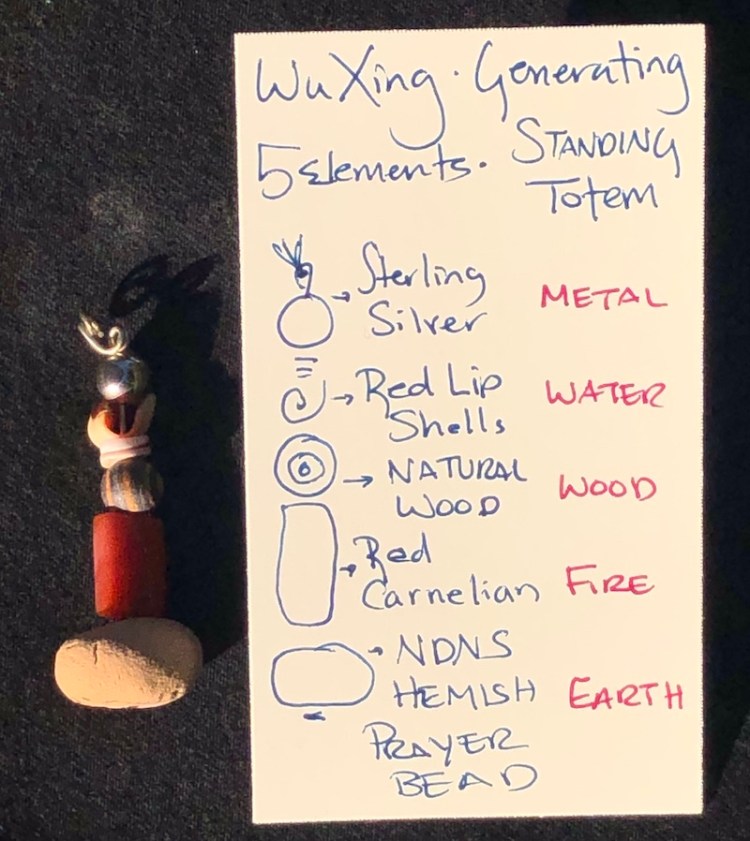 WuXing · Generating
5 Elements. STANDING
Totem
Sterling METAL
Silver
Red Lip WATER
Shells
NATURAL WOOD
WOOD
Red FIRE
Carnelian
NDNS
HEMISH EARTH
PRAYER
BEAD